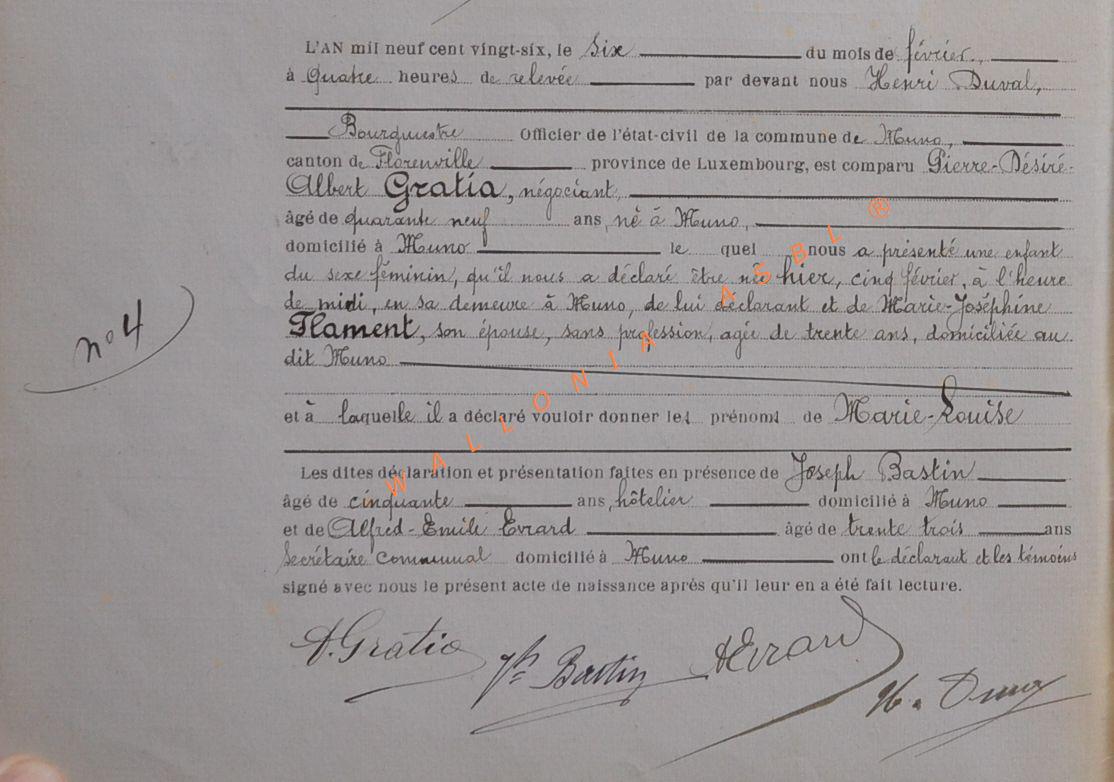 L'AN mil neuf cent vingt-six, le six du mois de février,
à quatre heures de relevée par devant nous Henri Duval,
Bourgmestre Officier de l'état-civil de la commune de Muno,
canton de Florenville province de Luxembourg, est comparu Pierre-Désiré-
Albert Gratia, négociant,
âgé de quarante neuf ans, né à Muno,
domicilié à Muno le quel nous a présenté une enfant
du sexe féminin, qu'il nous a déclaré être née hier, cinq février, à l'heure
de midi, en sa demeure à Muno, de lui déclarant et de Marie-Joséphine
Flament, son épouse, sans profession, agée de trente ans, domiciliée au
dit Muno
n° 4
et à laquelle il a déclaré vouloir donner les prénoms de Marie-Louise
Les dites déclaration et présentation faites en présence de Joseph Bastin
âgé de cinquante ans, hôtelier domicilié à Muno
et de Alfred-Emile Evrard âgé de trente trois ans
Secrétaire communal domicilié à Muno ont le déclarant et les témoins
signé avec nous le présent acte de naissance après qu'il leur en a été fait lecture.
A. Gratia Jph Bastin AEvrard
WALLONIA ASBL ®